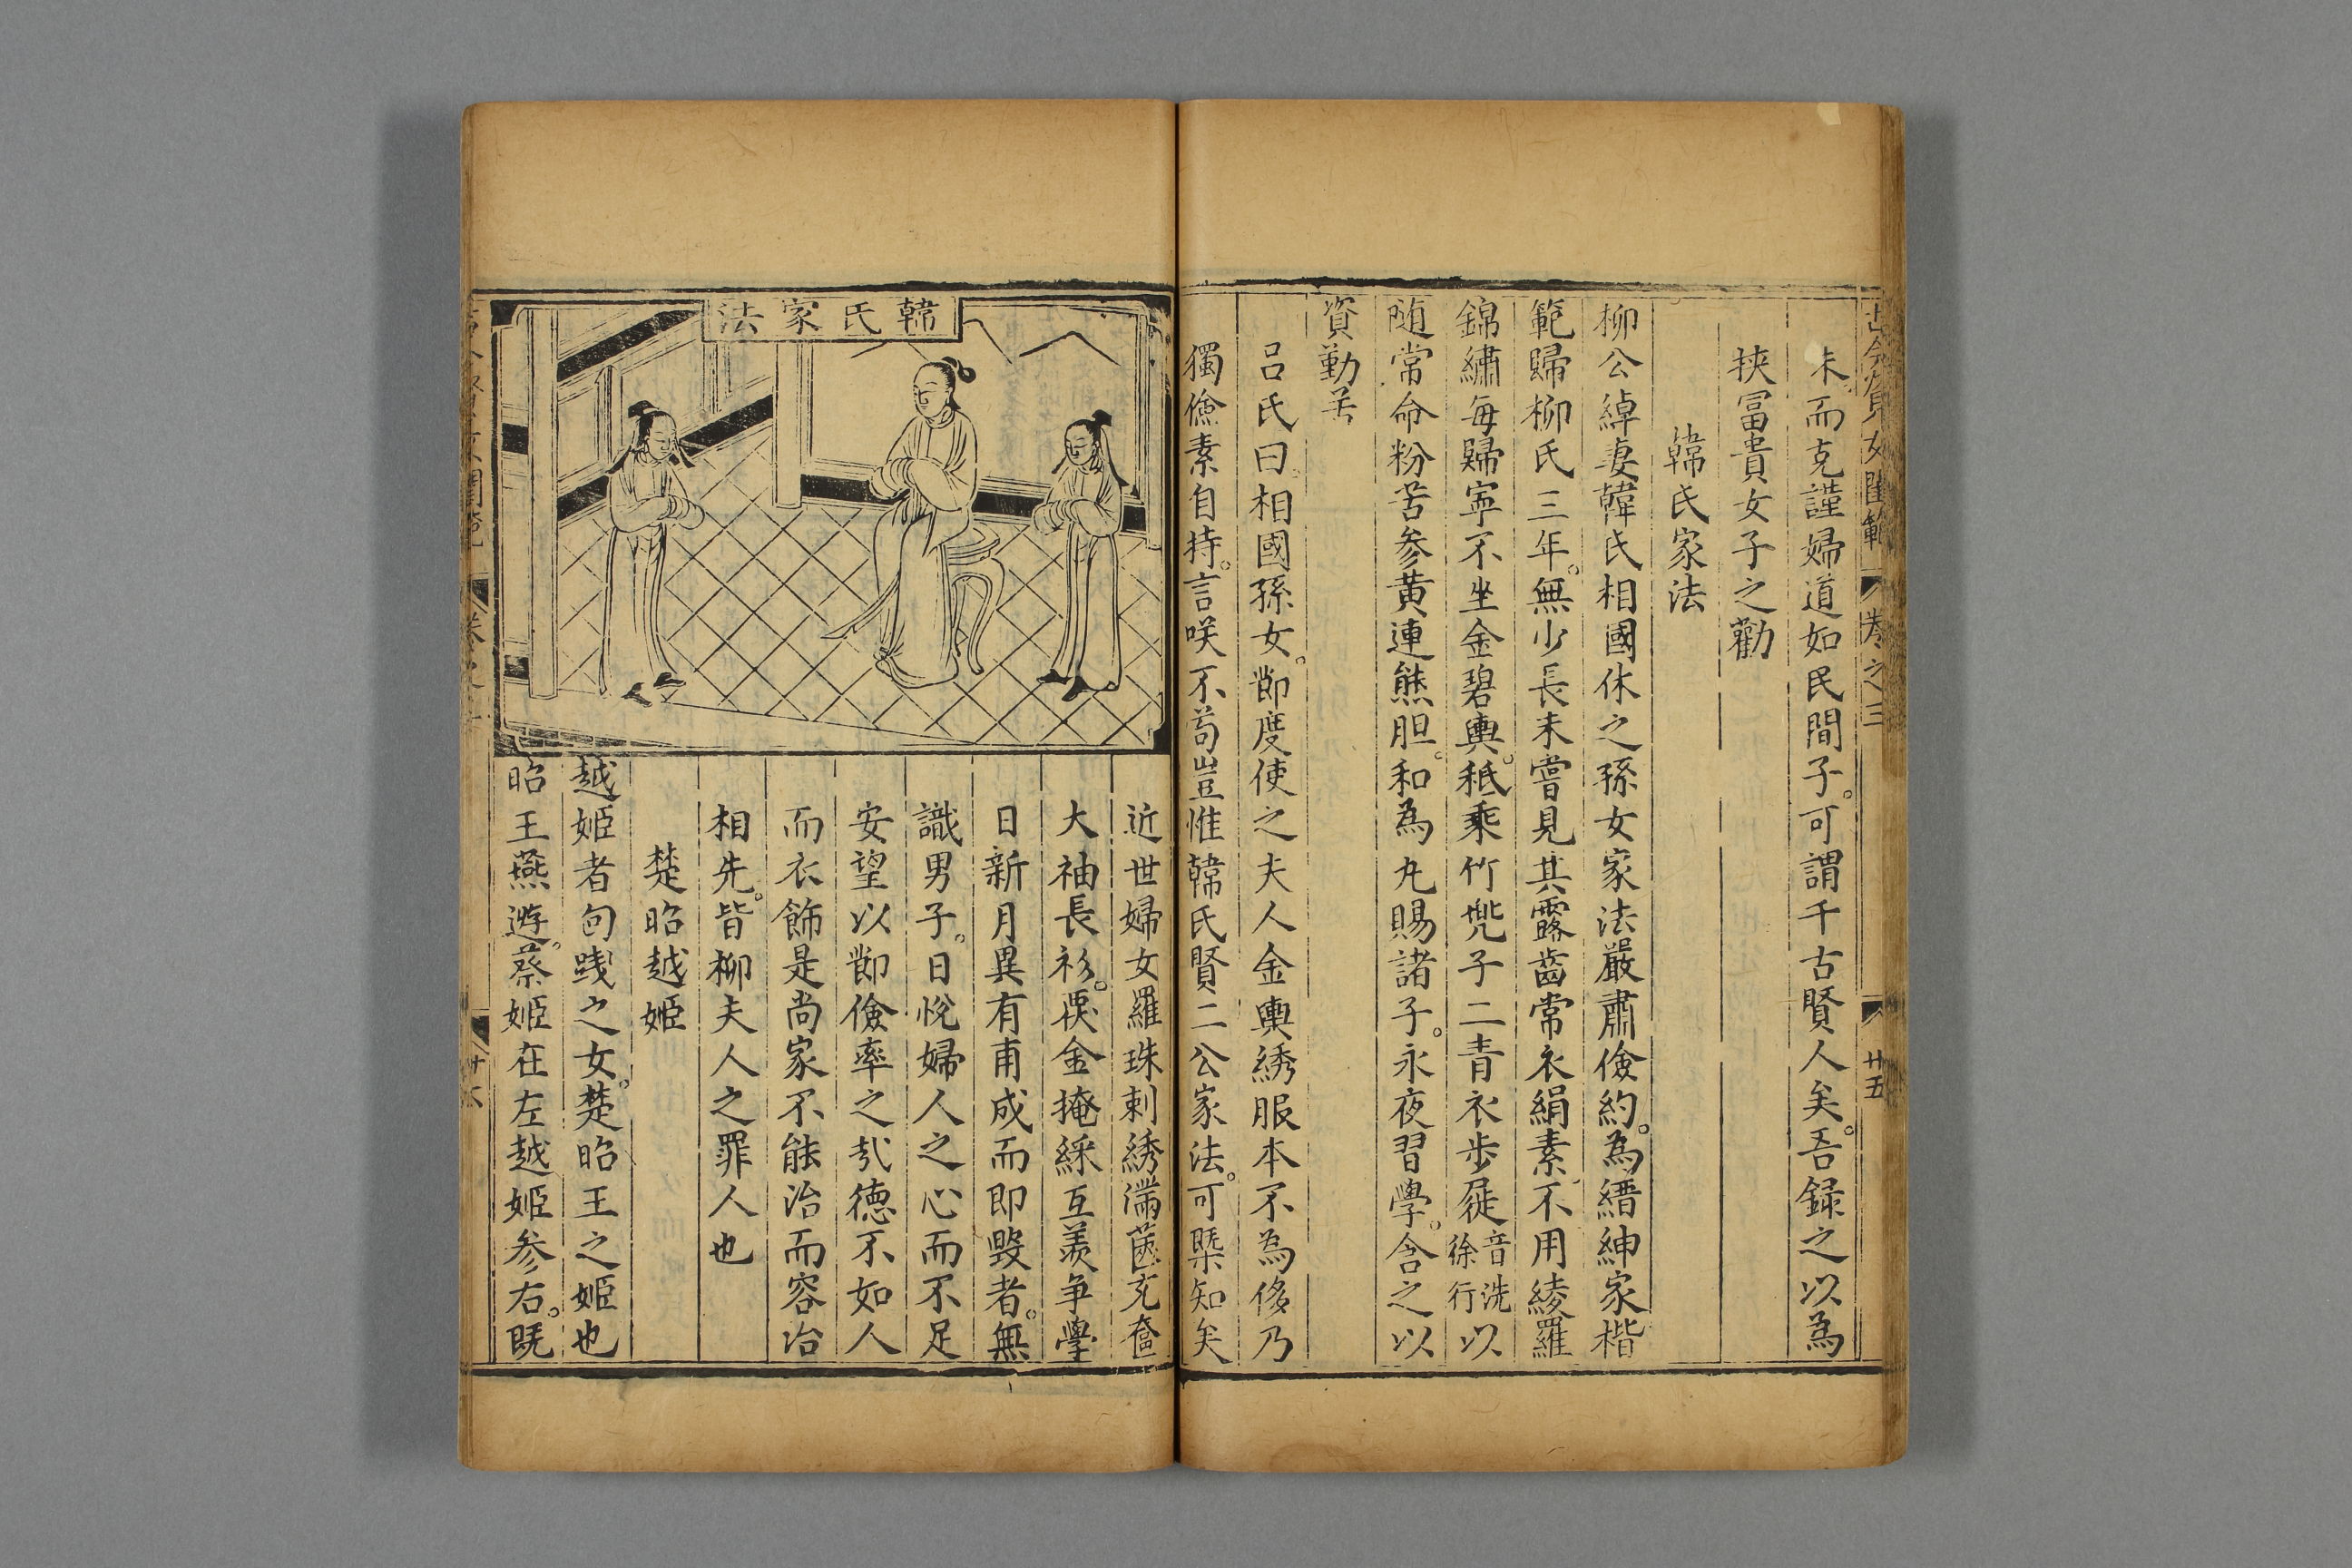 古今賢女閨範 卷之三 廿五
未而克謹婦道如民間子可謂千古賢人矣吾録之以為
挾冨貴女子之勸
韓氏家法
柳公綽妻韓氏相國休之孫女家法嚴肅儉約為縉紳家楷
範歸柳氏三年無少長未嘗見其露齒常衣絹素不用綾羅
錦繡每歸寧不坐金碧輿秪乘竹兠子二青衣步屣音洗徐行以
随常命粉苦參黄連熊胆和為丸賜諸子永夜習學含之以
資勤苦
吕氏曰相國孫女節度使之夫人金輿綉服本不為侈乃
獨儉素自持言咲不苟豈惟韓氏賢二公家法可槩知矣
韓氏家法
近世婦女羅珠刺綉滿篋充奩
大袖長衫覆金掩綵互羨争學
日新月異有甫成而即毀者無
識男子日悅婦人之心而不足
安望以節儉率之㢤德不如人
而衣飾是尚家不能治而容冶
相先皆柳夫人之罪人也
楚昭越姬
越姬者句践之女楚昭王之姬也
昭王燕遊蔡姬在左越姬参右既